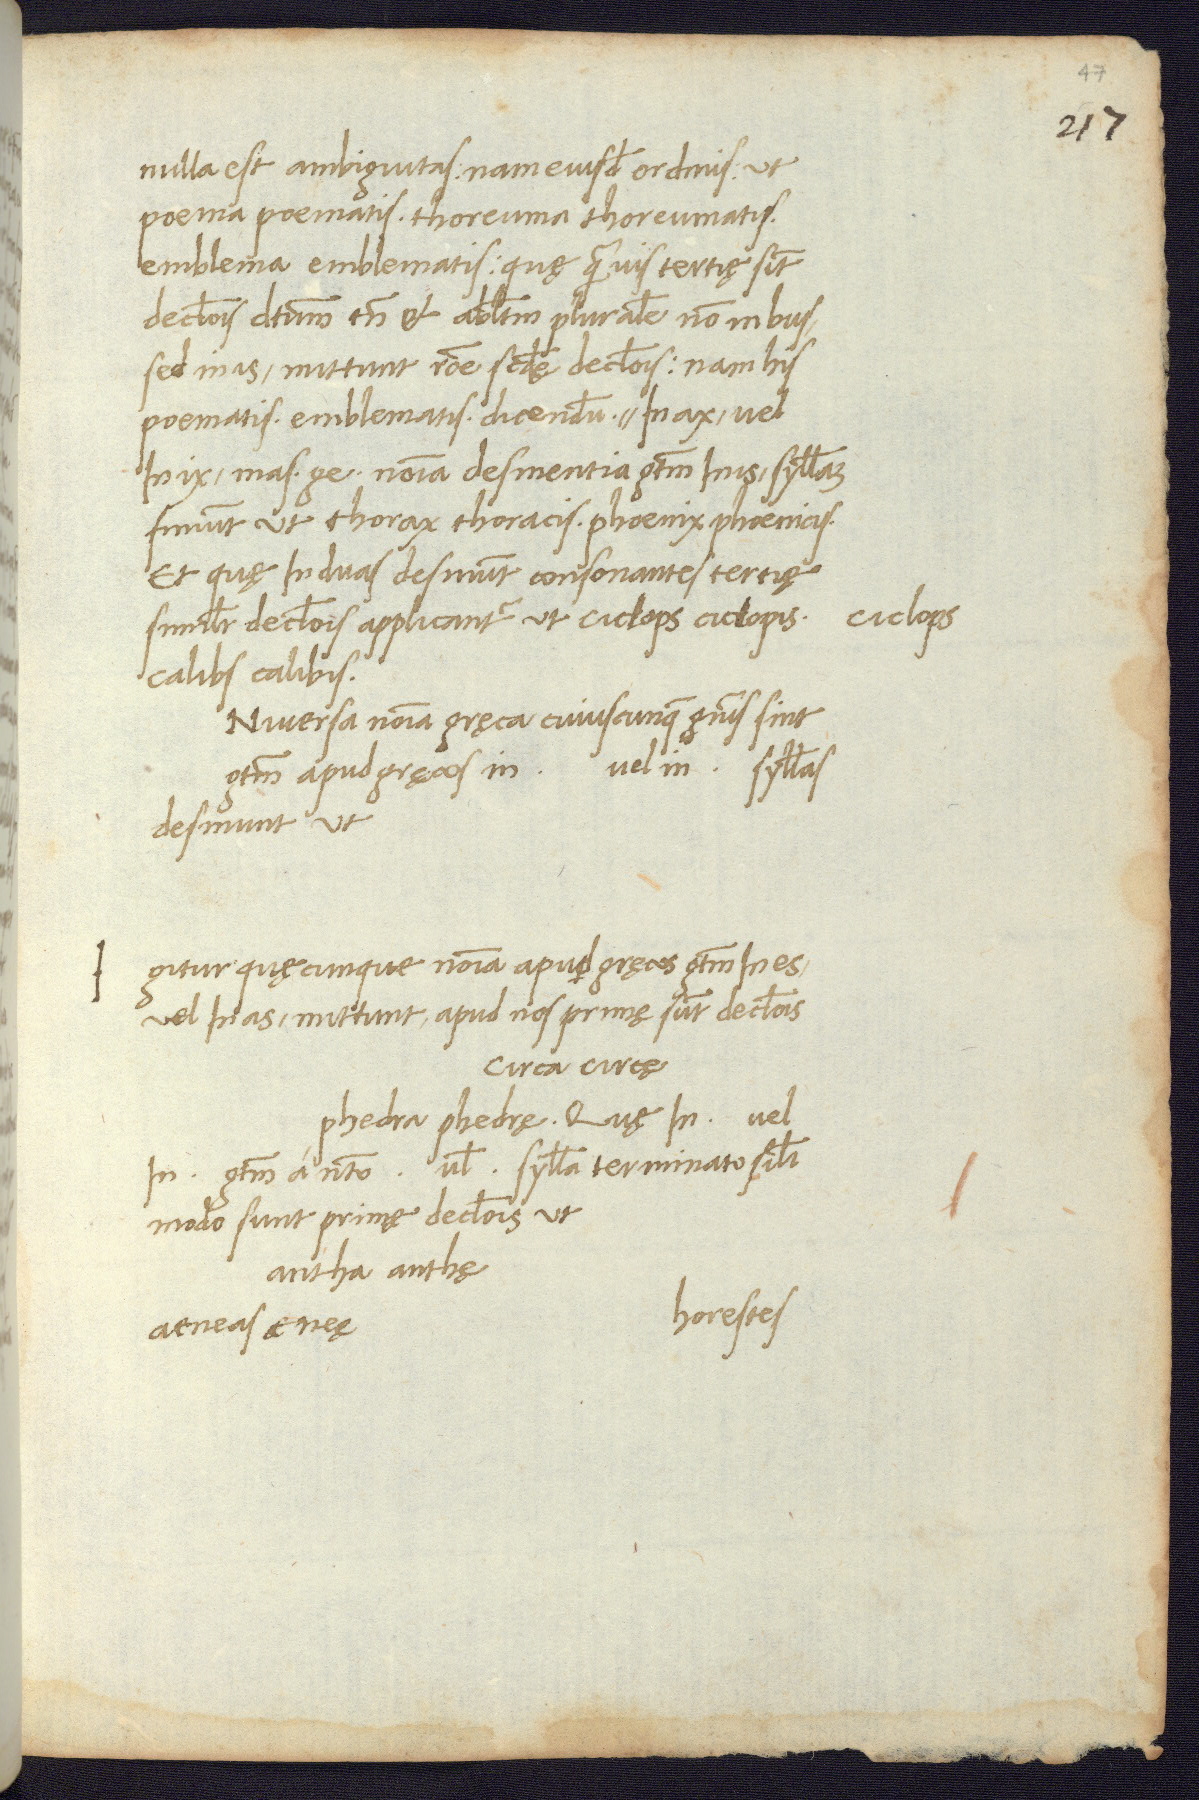 47
217
nulla est ambiguitas: nam eiusd̃ ordinis: ut
poema poematis. thoreuma thoreumatis.
emblema emblematis: quę q̃uis tertię sũt
decl̃ois dtiũm tñ & abl̃tm plurale nõ in bus,
sed in is, mittunt rõe scd̃ę decl̃ois: nam his
poematis. emblematis. dicendũ. // In ax, uel
In ix, mas. ge. nõia desinentia gt̃m In is, syll̃aʒ
finiũt ut thorax thoracis. phoenix phoenicis.
Et quę In duas desinũt consonantes tertię
simil̃r decl̃ois applicantʳ ut ciclops ciclopis. ciclops
calibs calibis.
Niuersa nõia gręca cuiuscunq̃ gñis sint
gt̃m apud gręcos in . uel in . syll̃as
desinunt ut
I gitur quęcunque nõia apud gręcos gt̃m In es,
vel In as, mittunt, apud nos primę sũt decl̃ois
circa circę
phedra phedrę. Quę In . uel
In . gt̃m á nt̃o . ul̃ . syll̃a terminato sil̃i
modo sunt primę decl̃ois ut
antha anthę
aeneas ęnęę horestes